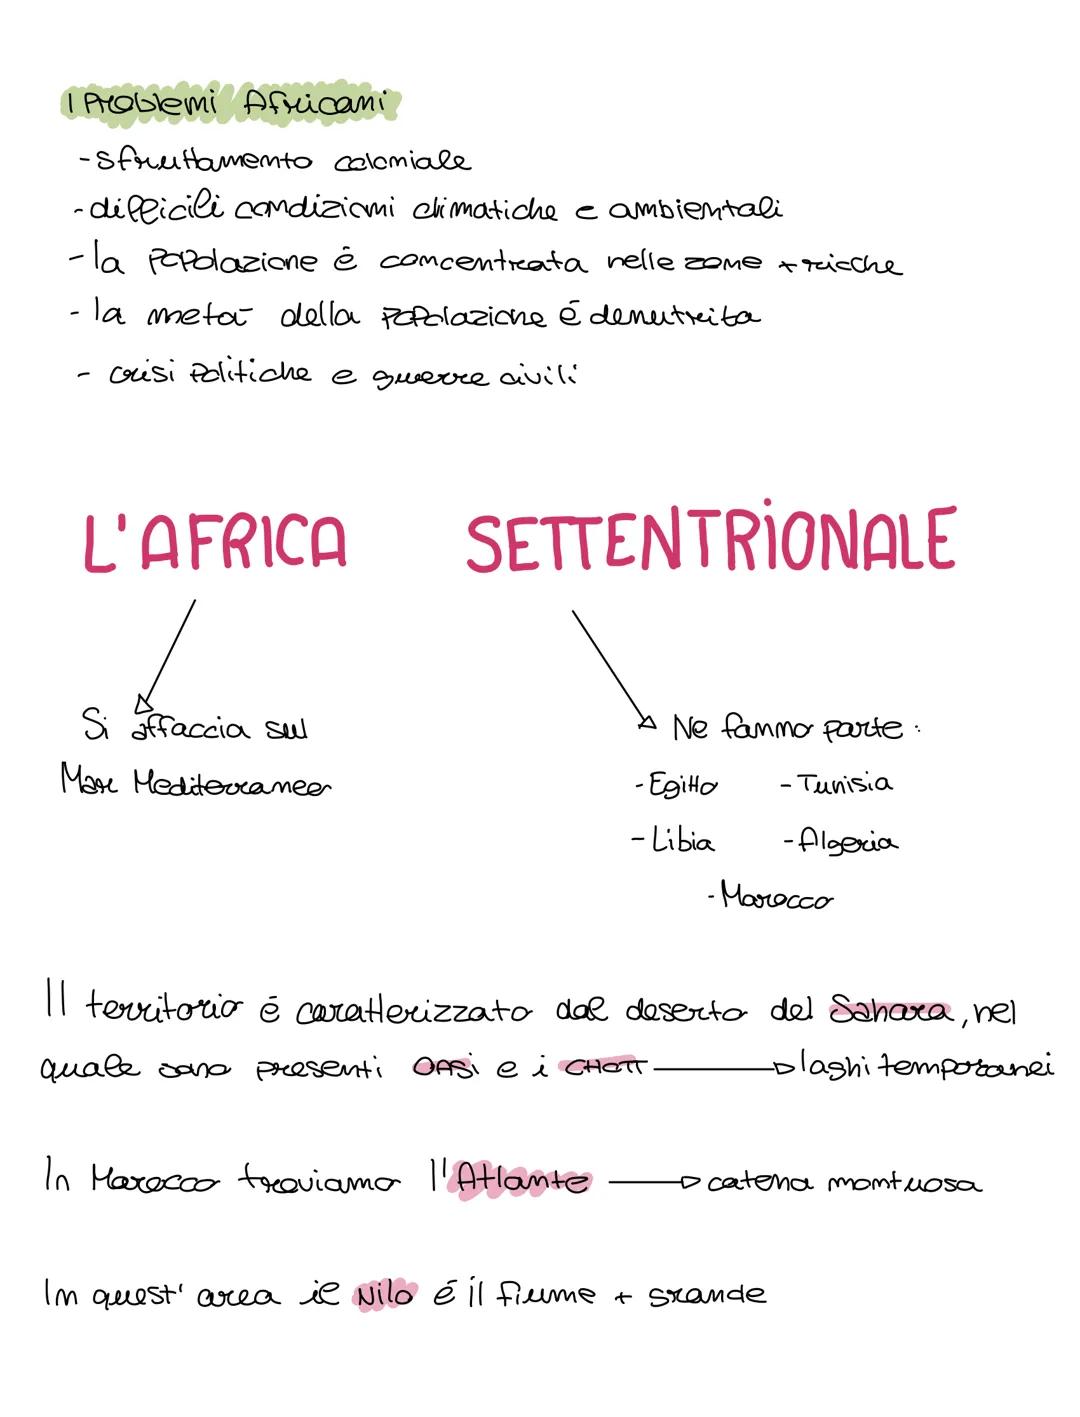 I Problemi Africani
- sfruttamento coloniale
- difficili condizioni climatiche e ambientali
- la popolazione è concentrata nelle zone + ricche
- la metà della popolazione é denutrita
- crisi politiche e guerre civili
L'AFRICA SETTENTRIONALE
Si affaccia sul
Mare Mediterraneo
Ne fanno parte:
- Egitto - Tunisia
- Libia - Algeria
- Marocco
Il territorio é caratterizzato dal deserto del Sahara, nel
quale sono presenti OASi e i CHOTT laghi temporanei
In Marocco troviamo l'Atlante catena montuosa
In quest' area il Nilo é il fiume + grande